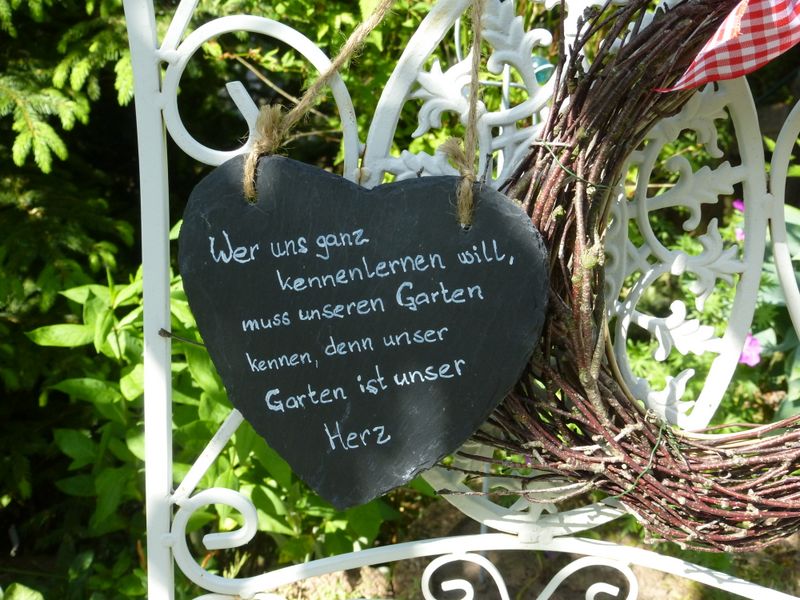 Wer uns ganz
kennenlernen will,
muss unseren Garten
kennen, denn unser
Garten ist unser
Herz